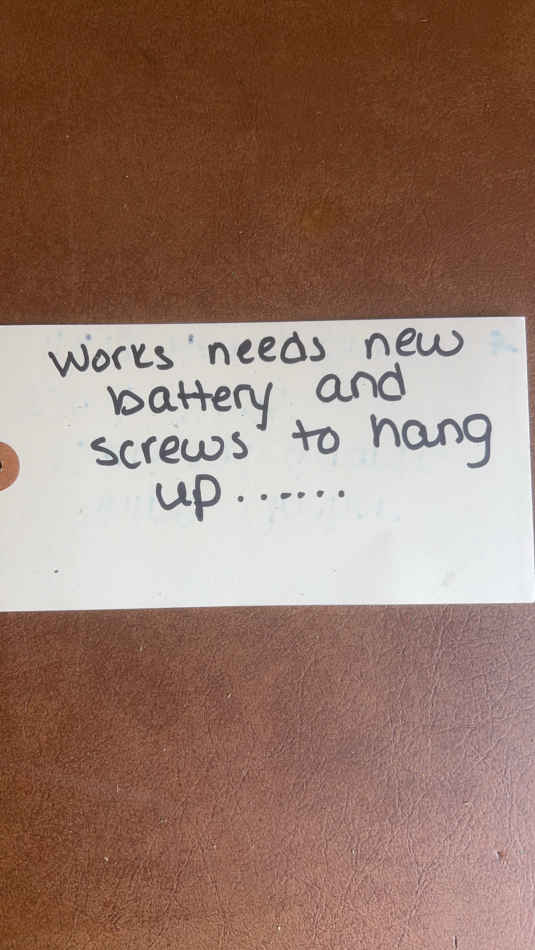 Works needs new
battery and
screws to hang
up.......